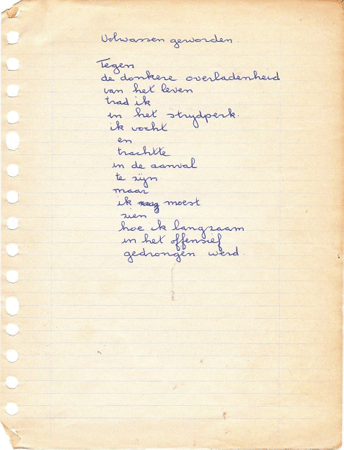 Volwassen geworden
Tegen
de donkere overladenheid
van het leven
trad ik
in het strijdperk.
ik vocht
en
trachtte
in de aanval
te zijn
maar
ik moest
zien
hoe ik langzaam
in het offensief
gedrongen werd.